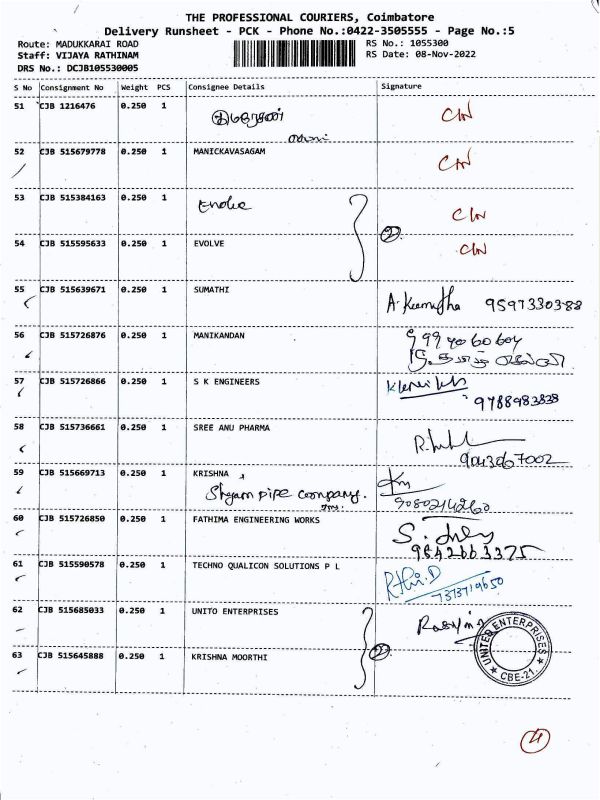 THE PROFESSIONAL COURIERS, Coimbatore
Delivery Runsheet - PCK - Phone No.:0422-3505555 - Page No.:5
Route: MADUKKARAI ROAD
Staff: VIJAYA RATHINAM
DRS No.: DCJB105530005
RS No.: 1055300
RS Date: 08-Nov-2022
S No Consignment No Weight PCS Consignee Details Signature
51 CJB 1216476 0.250 1 C/N
52 CJB 515679778 0.250 1 MANICKAVASAGAM C/N
53 CJB 515384163 0.250 1 Evolve C/N
2
54 CJB 515595633 0.250 1 EVOLVE C/N
55 CJB 515639671 0.250 1 SUMATHI
9597330388
56 CJB 515726876 0.250 1 MANIKANDAN
57 CJB 515726866 0.250 1 S K ENGINEERS
9788983838
58 CJB 515736661 0.250 1 SREE ANU PHARMA
9043067002
59 CJB 515669713 0.250 1 KRISHNA
Shyam pipe company.
9080214260
60 CJB 515726850 0.250 1 FATHIMA ENGINEERING WORKS
9842663375
61 CJB 515590578 0.250 1 TECHNO QUALICON SOLUTIONS P L
7373719650
62 CJB 515685033 0.250 1 UNITO ENTERPRISES
UNITED ENTERPRISES
CBE-21.
2
63 CJB 515645888 0.250 1 KRISHNA MOORTHI